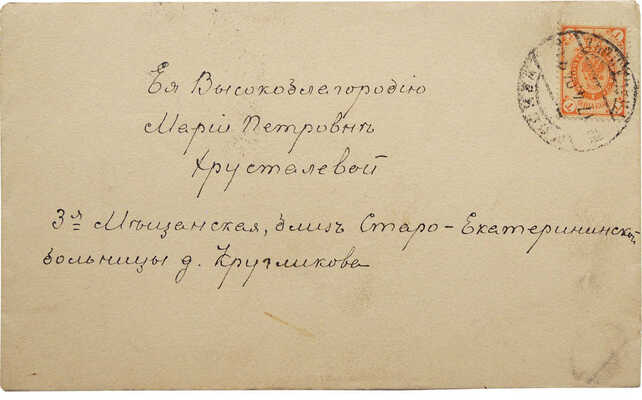 Ея Высокоблагородію
Маріи Петровнѣ
Хрусталевой
3я Мѣщанская, близъ Старо-Екатерининск.
больницы д. Кругликова